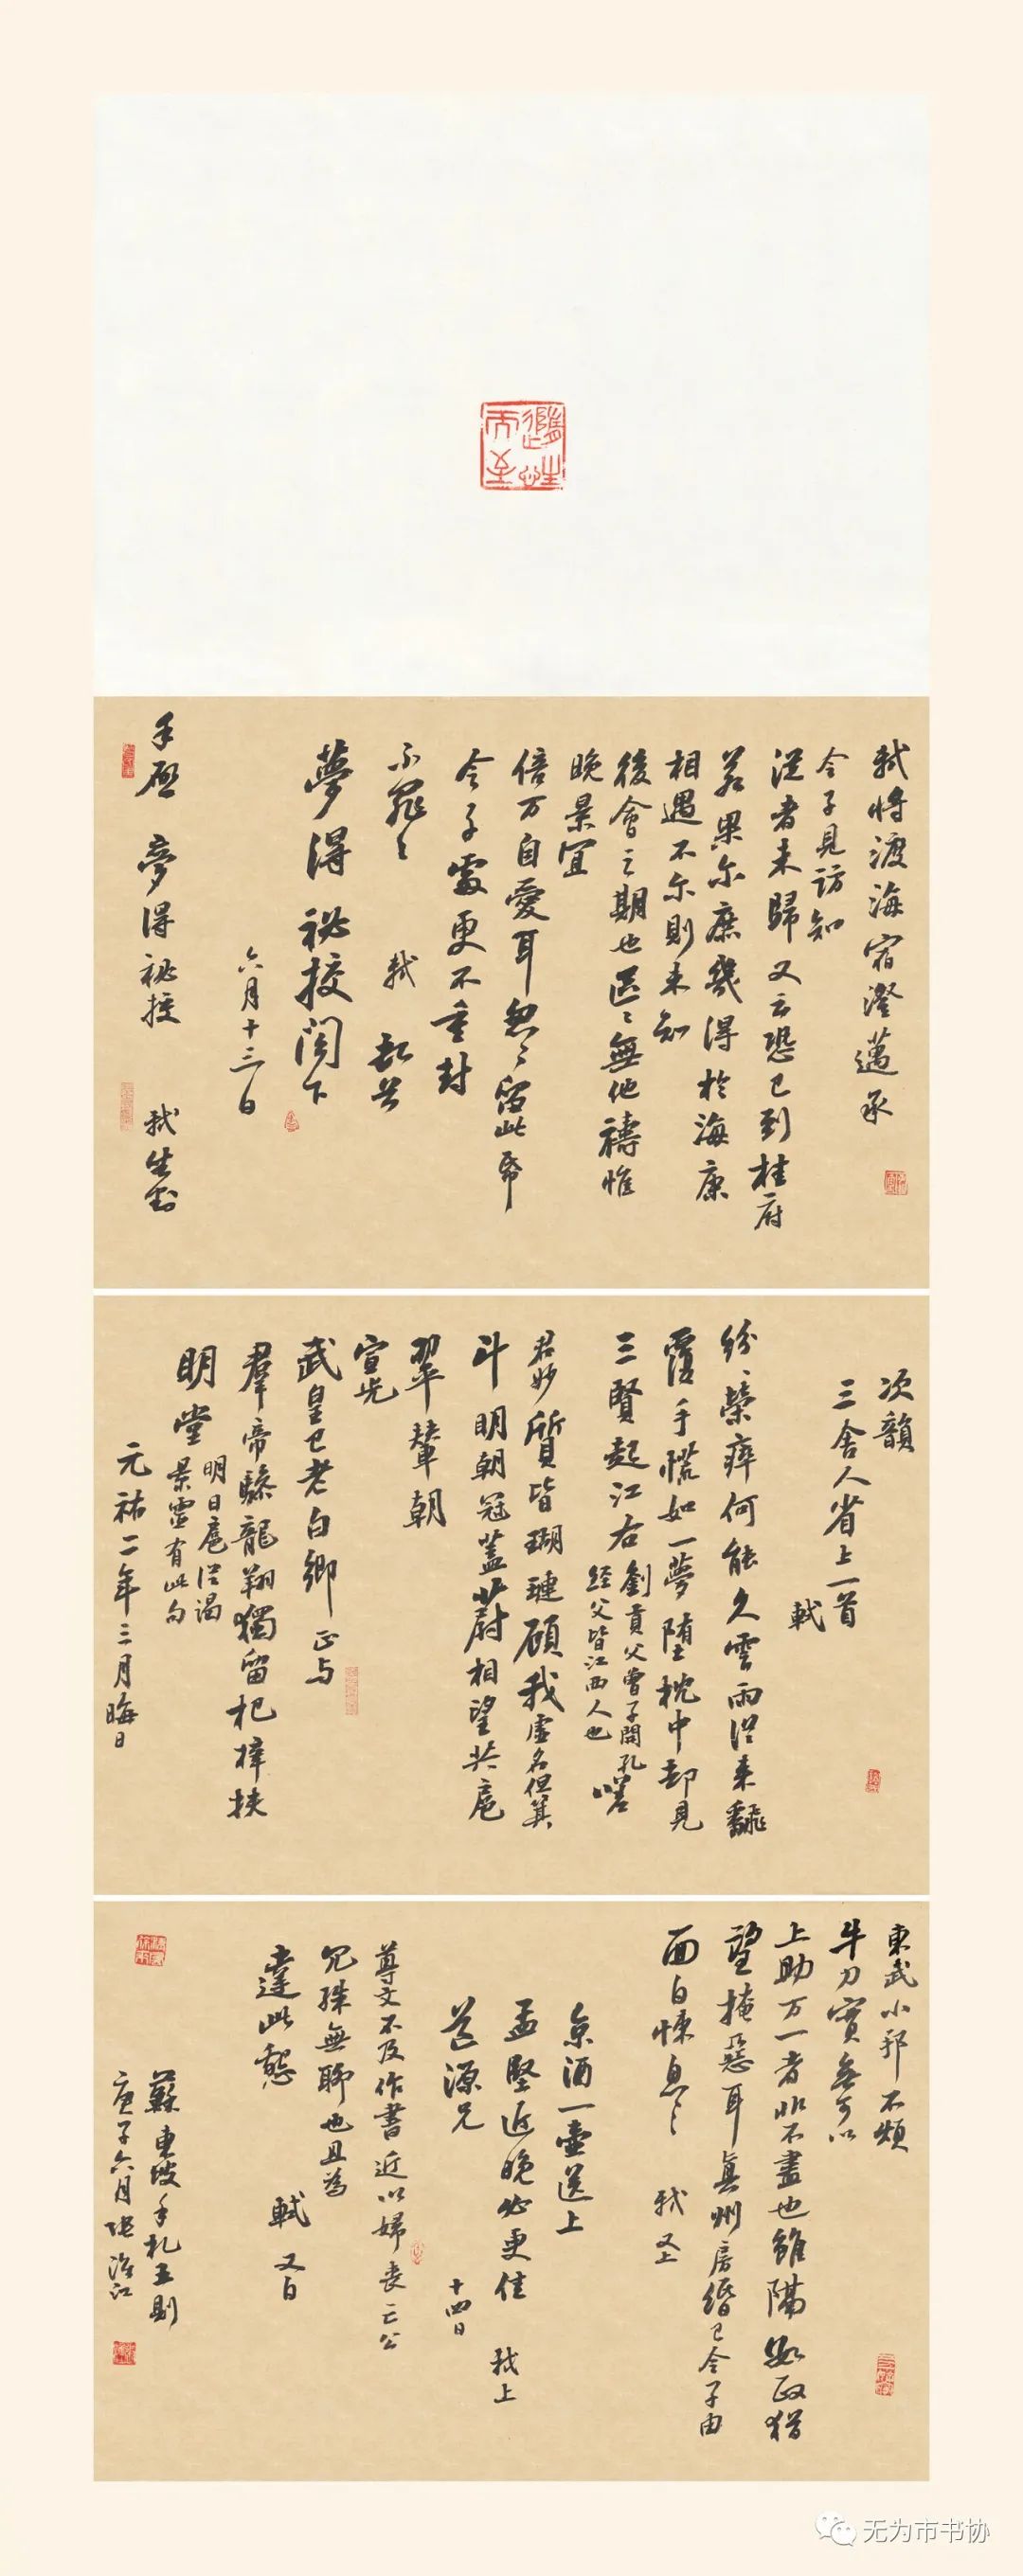 軾將渡海宿澄邁承
令子見訪知
從者未歸又云恐已到桂府
若果尔庶幾得於海康
相遇不尔則未知
後會之期也區〻無他禱惟
晚景宜
倍万自愛耳忽〻留此帋
令子處更不重封
不罪〻 軾 頓首
夢得祕挍閣下
六月十三日
手啟 夢得祕挍 軾生封
次韻
三舍人省上一首
軾
紛〻榮瘁何能久雲雨從來翻
覆手恍如一夢堕枕中却見
三賢起江右 劉貢父曾子開孔
經父皆江西人也 嗟
君妙質皆瑚璉顧我虛名但箕
斗明朝冠蓋蔚相望共扈
翠輦朝
宣光
武皇已老白鄉 正与
羣帝驂龍翔獨留杞梓扶
明堂 明日扈從謁
景靈有此句
元祐二年三月晦日
東武小邦不煩
牛刀實無可以
上助万一者非不盡也雖隔數政猶
望掩惡耳真州房緡已令子由
面白悚息〻 軾又上
京酒一壺送上
孟堅近晚必更佳 軾上
道源兄
十四日
尊丈不及作書近以婦喪亡公
冗殊無聊也且為
達此懇 軾又白
蘇東坡手札五則
庚子六月
无为市书协